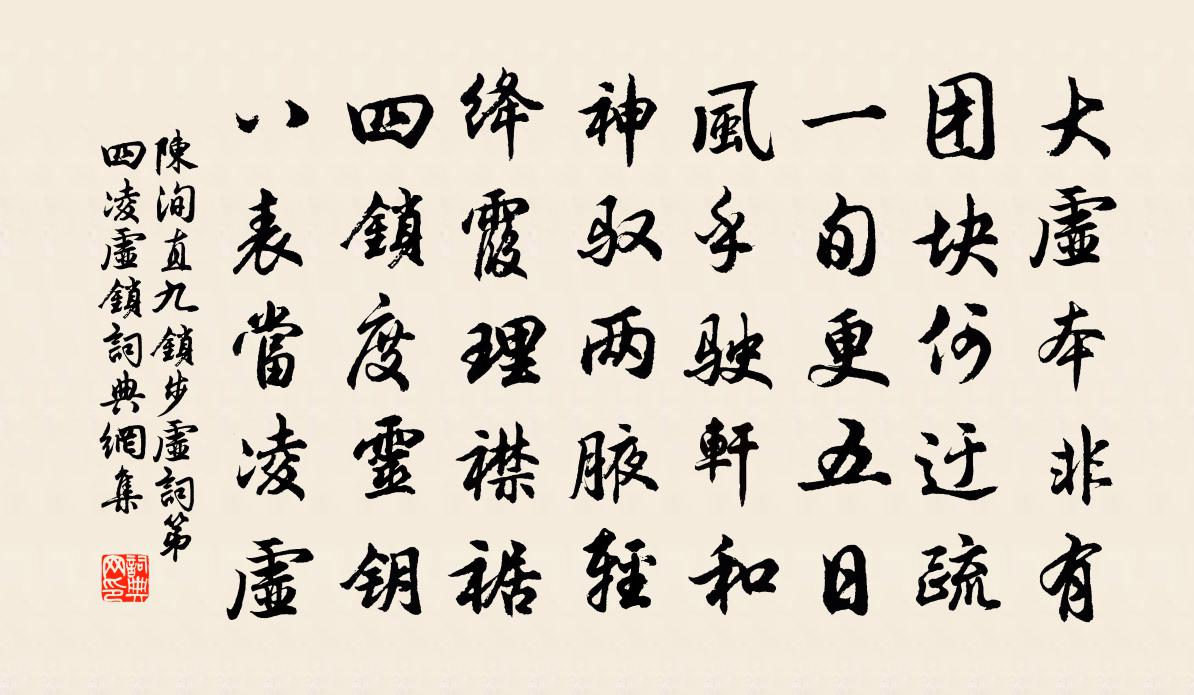 大虛本非有
团块何迂疏
一旬更五日
風乎駛軒和
神驭两腋輕
绛霞理襟裾
四鎖度靈钥
八表當凌虛
陳洵直九鎖步虛詞第
四凌虛鎖詞典網集
詞典網印